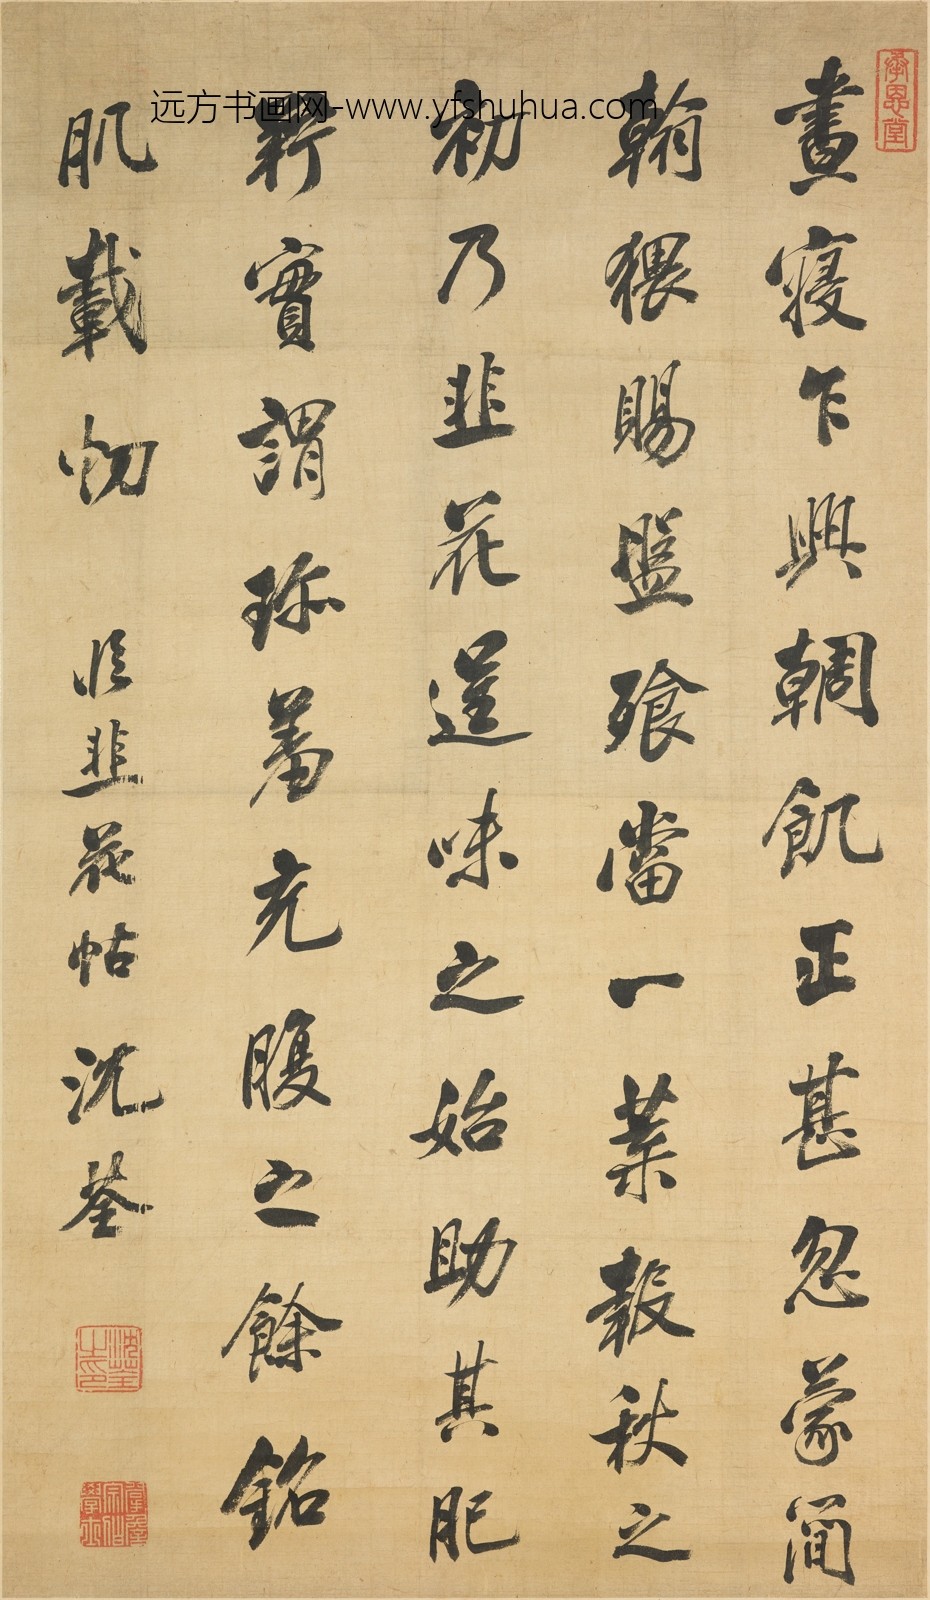 承恩堂
晝寢乍興輖飢正甚忽蒙簡
翰猥賜盤飱當一葉報秋之
初乃韭花逞味之始助其肥
羜實謂珍羞充腹之餘銘
肌載切 臨韭花帖 沈荃
沈荃之印
远方书画网-www.yfshuhua.com